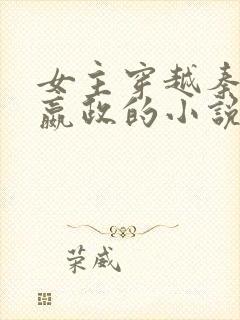 女主穿越秦
嬴政的小说
荣威